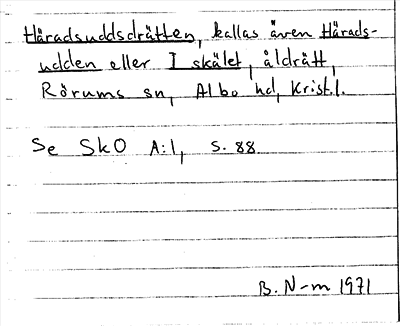 Häradsuddsdrätten, kallas även Härads-
udden eller I skälet, åldrätt,
Rörums sn, Albo hd, Krist.l.
Se SkO A:1, s. 88
B. N-m 1971